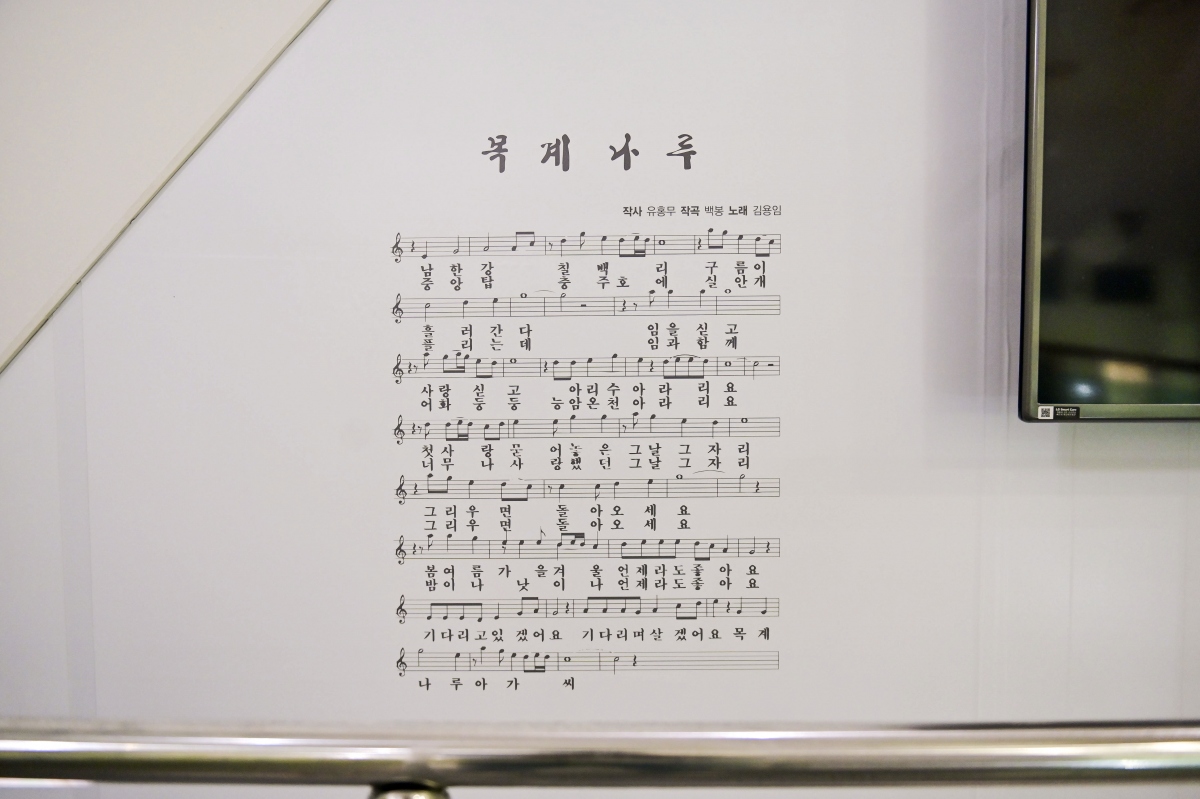 목계나루
작사 유홍무 작곡 백봉 노래 김용임
남한강 칠백 리 구름이
중앙탑 충주호에 실안개
흘러간다 임을 싣고
플리는데 임과 함께
사랑 싣고 아리수 아라리요
어화 둥둥 능암온천 아라리요
첫사랑 묻어놓은 그날 그 자리
너무나 사랑했던 그날 그 자리
그리우면 돌아오세요
그리우면 돌아오세요
봄여름가을겨울 언제라도좋아요
밤이나 낮이나 언제라도좋아요
기다리고있겠어요 기다리며살겠어요 목계
나루아가씨